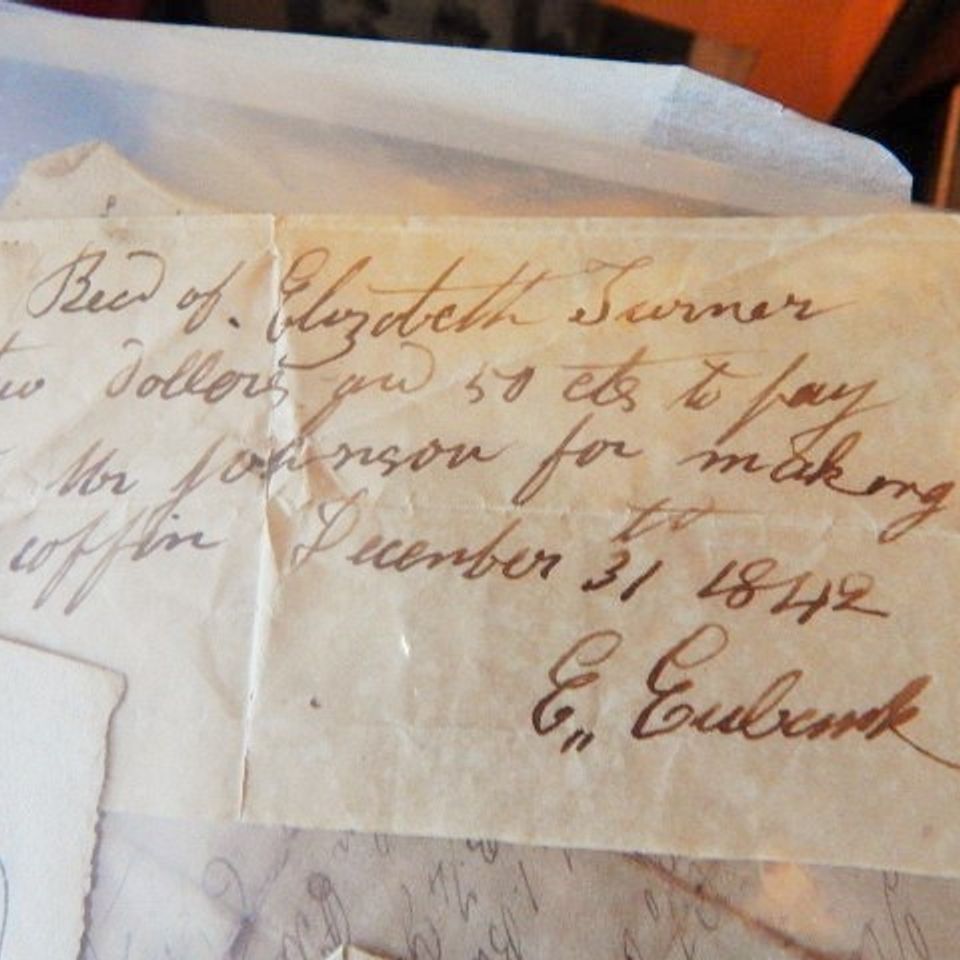 Recd of. Elizabeth Turner
two dollors and 50 cts to pay
Mr Johnson for making
coffin December 31th 1842
E,, Eubank